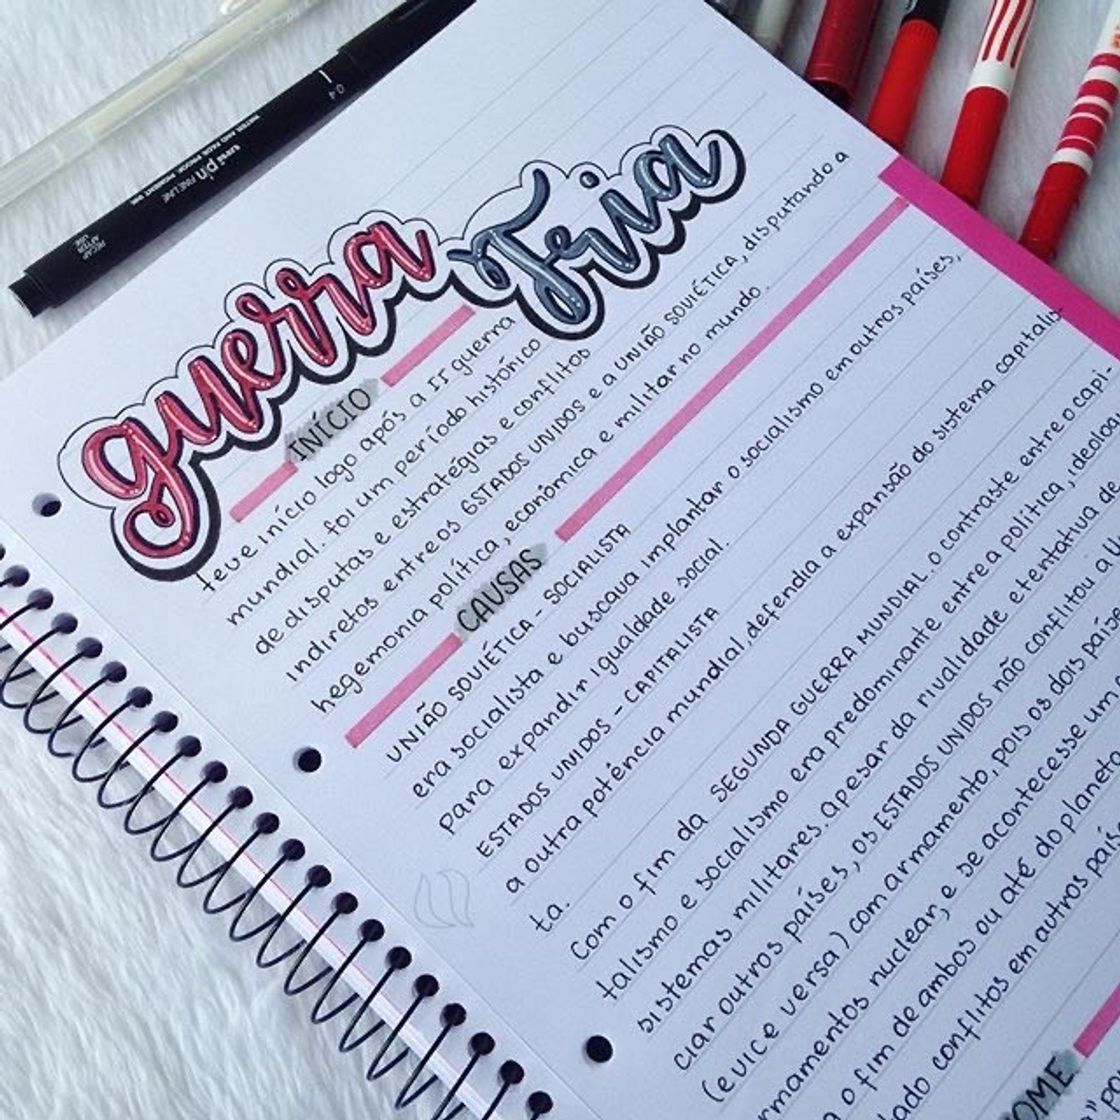 guerra Fria
INÍCIO
teve início logo após a II guerra
mundial. foi um período histórico
de disputas e estratégias e conflitos
indiretos entre os ESTADOS UNIDOS e a UNIÃO SOVIÉTICA, disputando a
hegemonia política, econômica e militar no mundo.
CAUSAS
UNIÃO SOVIÉTICA - SOCIALISTA
era socialista e buscava implantar o socialismo em outros países,
para expandir igualdade social.
ESTADOS UNIDOS - CAPITALISTA
a outra potência mundial, defendia a expansão do sistema capitalis-
ta.
Com o fim da SEGUNDA GUERRA MUNDIAL. o contraste entre o capi-
talismo e socialismo era predominante entre a política,
sistemas militares. apesar da rivalidade e tentativa de
ciar outros países, os ESTADOS UNIDOS não conflitou a
(e vice versa) com armamento, pois os dois países
armamentos nuclear, e se acontecesse um
o fim de ambos ou até do planeta
conflitos em outros
uni pin FINE LINE
WATER AND FADE PROOF, PIGMENT INK
RECAP
AFTER
USE
0.4